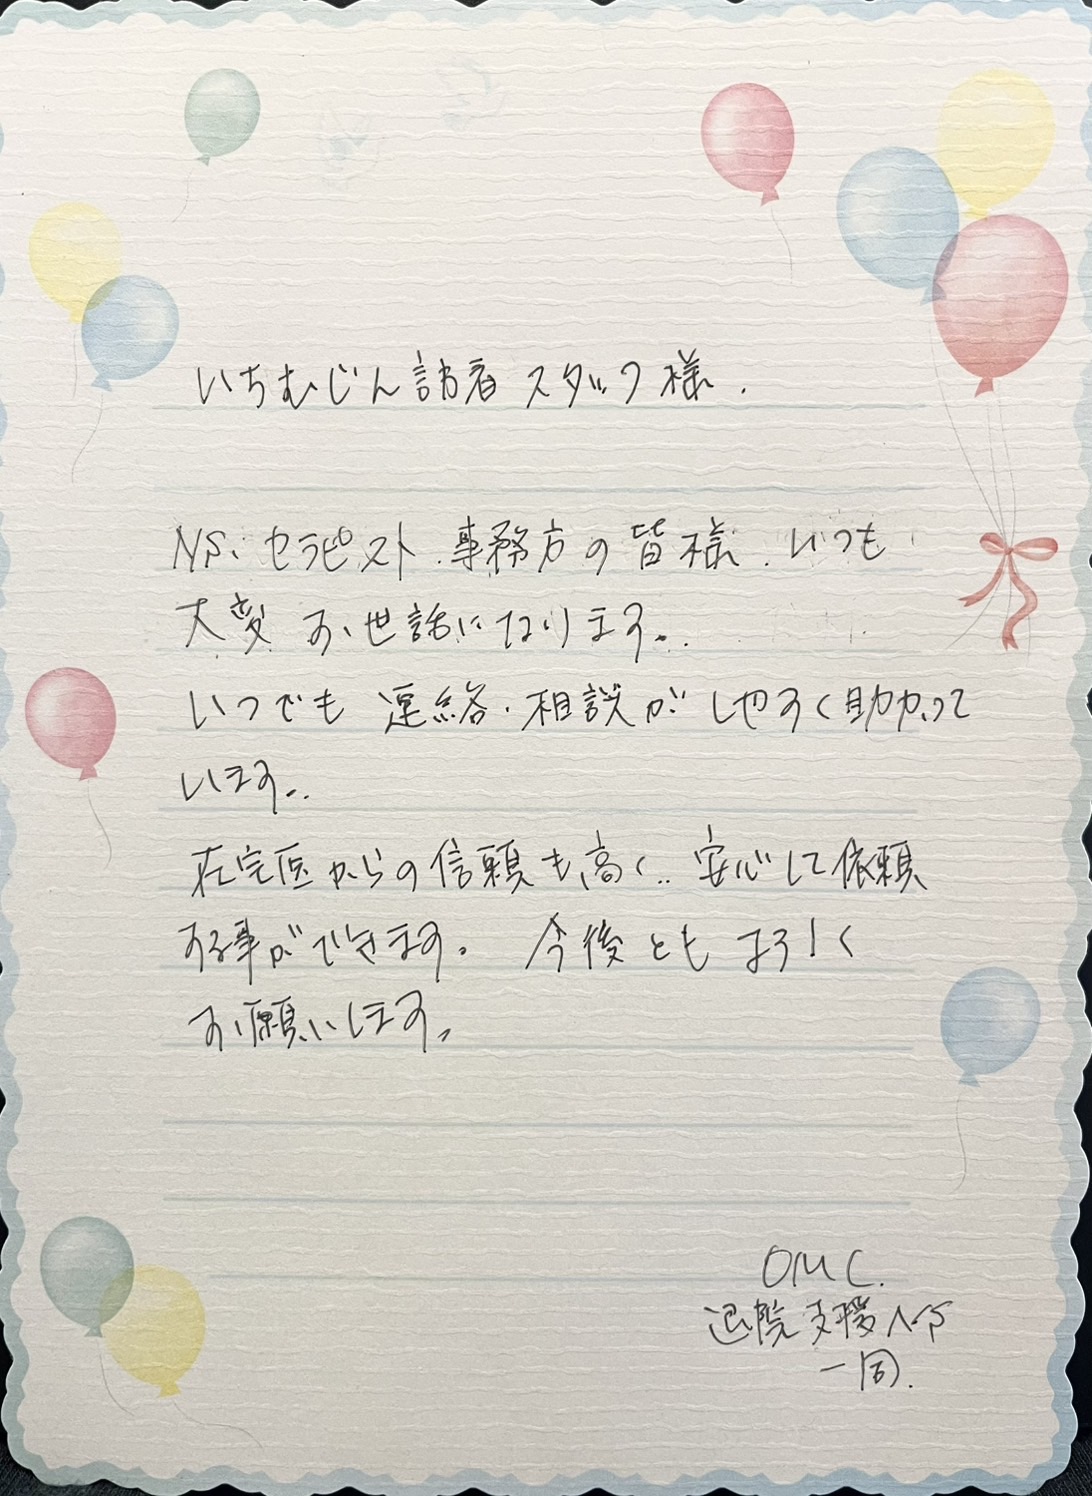 いちむじん訪看 スタッフ様.
NS、セラピスト、事務方の皆様、いつも
大変お世話になります。
いつでも連絡・相談がしやすく助かって
います。
在宅医からの信頼も高く、安心して依頼
する事ができます。今後ともよろしく
お願いします。
OMC.
退院支援NS
一同.